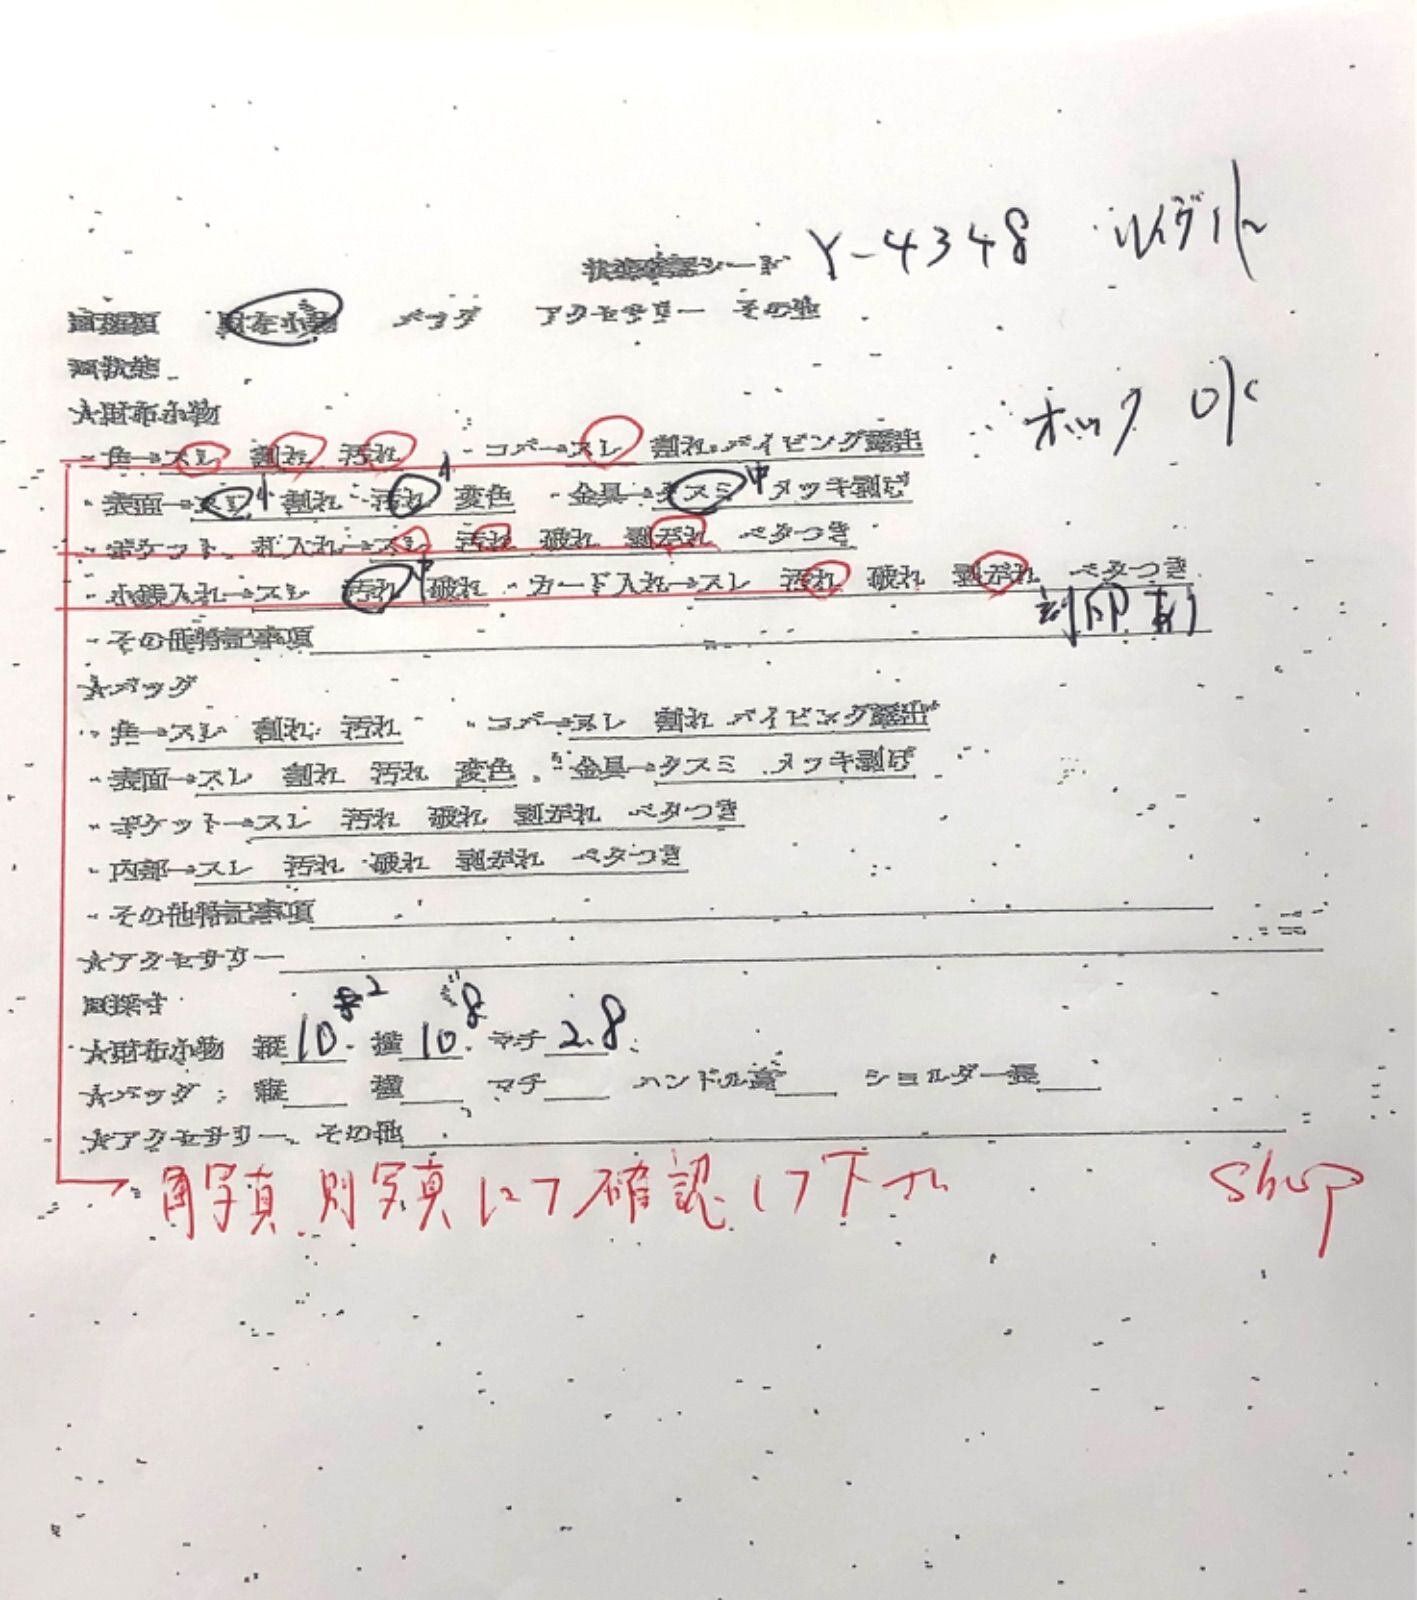 状態確認シート Y-4348 ルイヴィト
■種類 財布小物 バッグ アクセサリー その他
■状態
★財布小物
・角→スレ 割れ 汚れ ・コバ→スレ 割れ パイピング露出 ホック OK
・表面→スレ 小 割れ 汚れ 小 変色 ・金具→クスミ 中 メッキ剥げ
・ポケット、札入れ→スレ 汚れ 破れ 剥がれ ベタつき
・小銭入れ→スレ 汚れ 中 破れ ・カード入れ→スレ 汚れ 破れ 剥がれ ベタつき
・その他特記事項 刻印有り
★バッグ
・角→スレ 割れ 汚れ ・コバ→スレ 割れ パイピング露出
・表面→スレ 割れ 汚れ 変色 ・金具→クスミ メッキ剥げ
・ポケット→スレ 汚れ 破れ 剥がれ ベタつき
・内部→スレ 汚れ 破れ 剥がれ ベタつき
・その他特記事項
★アクセサリー
■採寸
★財布小物 縦 10.2 横 10.8 マチ 2.8
★バッグ 縦 横 マチ ハンドル高 ショルダー長
★アクセサリー、その他
角写真、別写真にて確認して下さい Shop